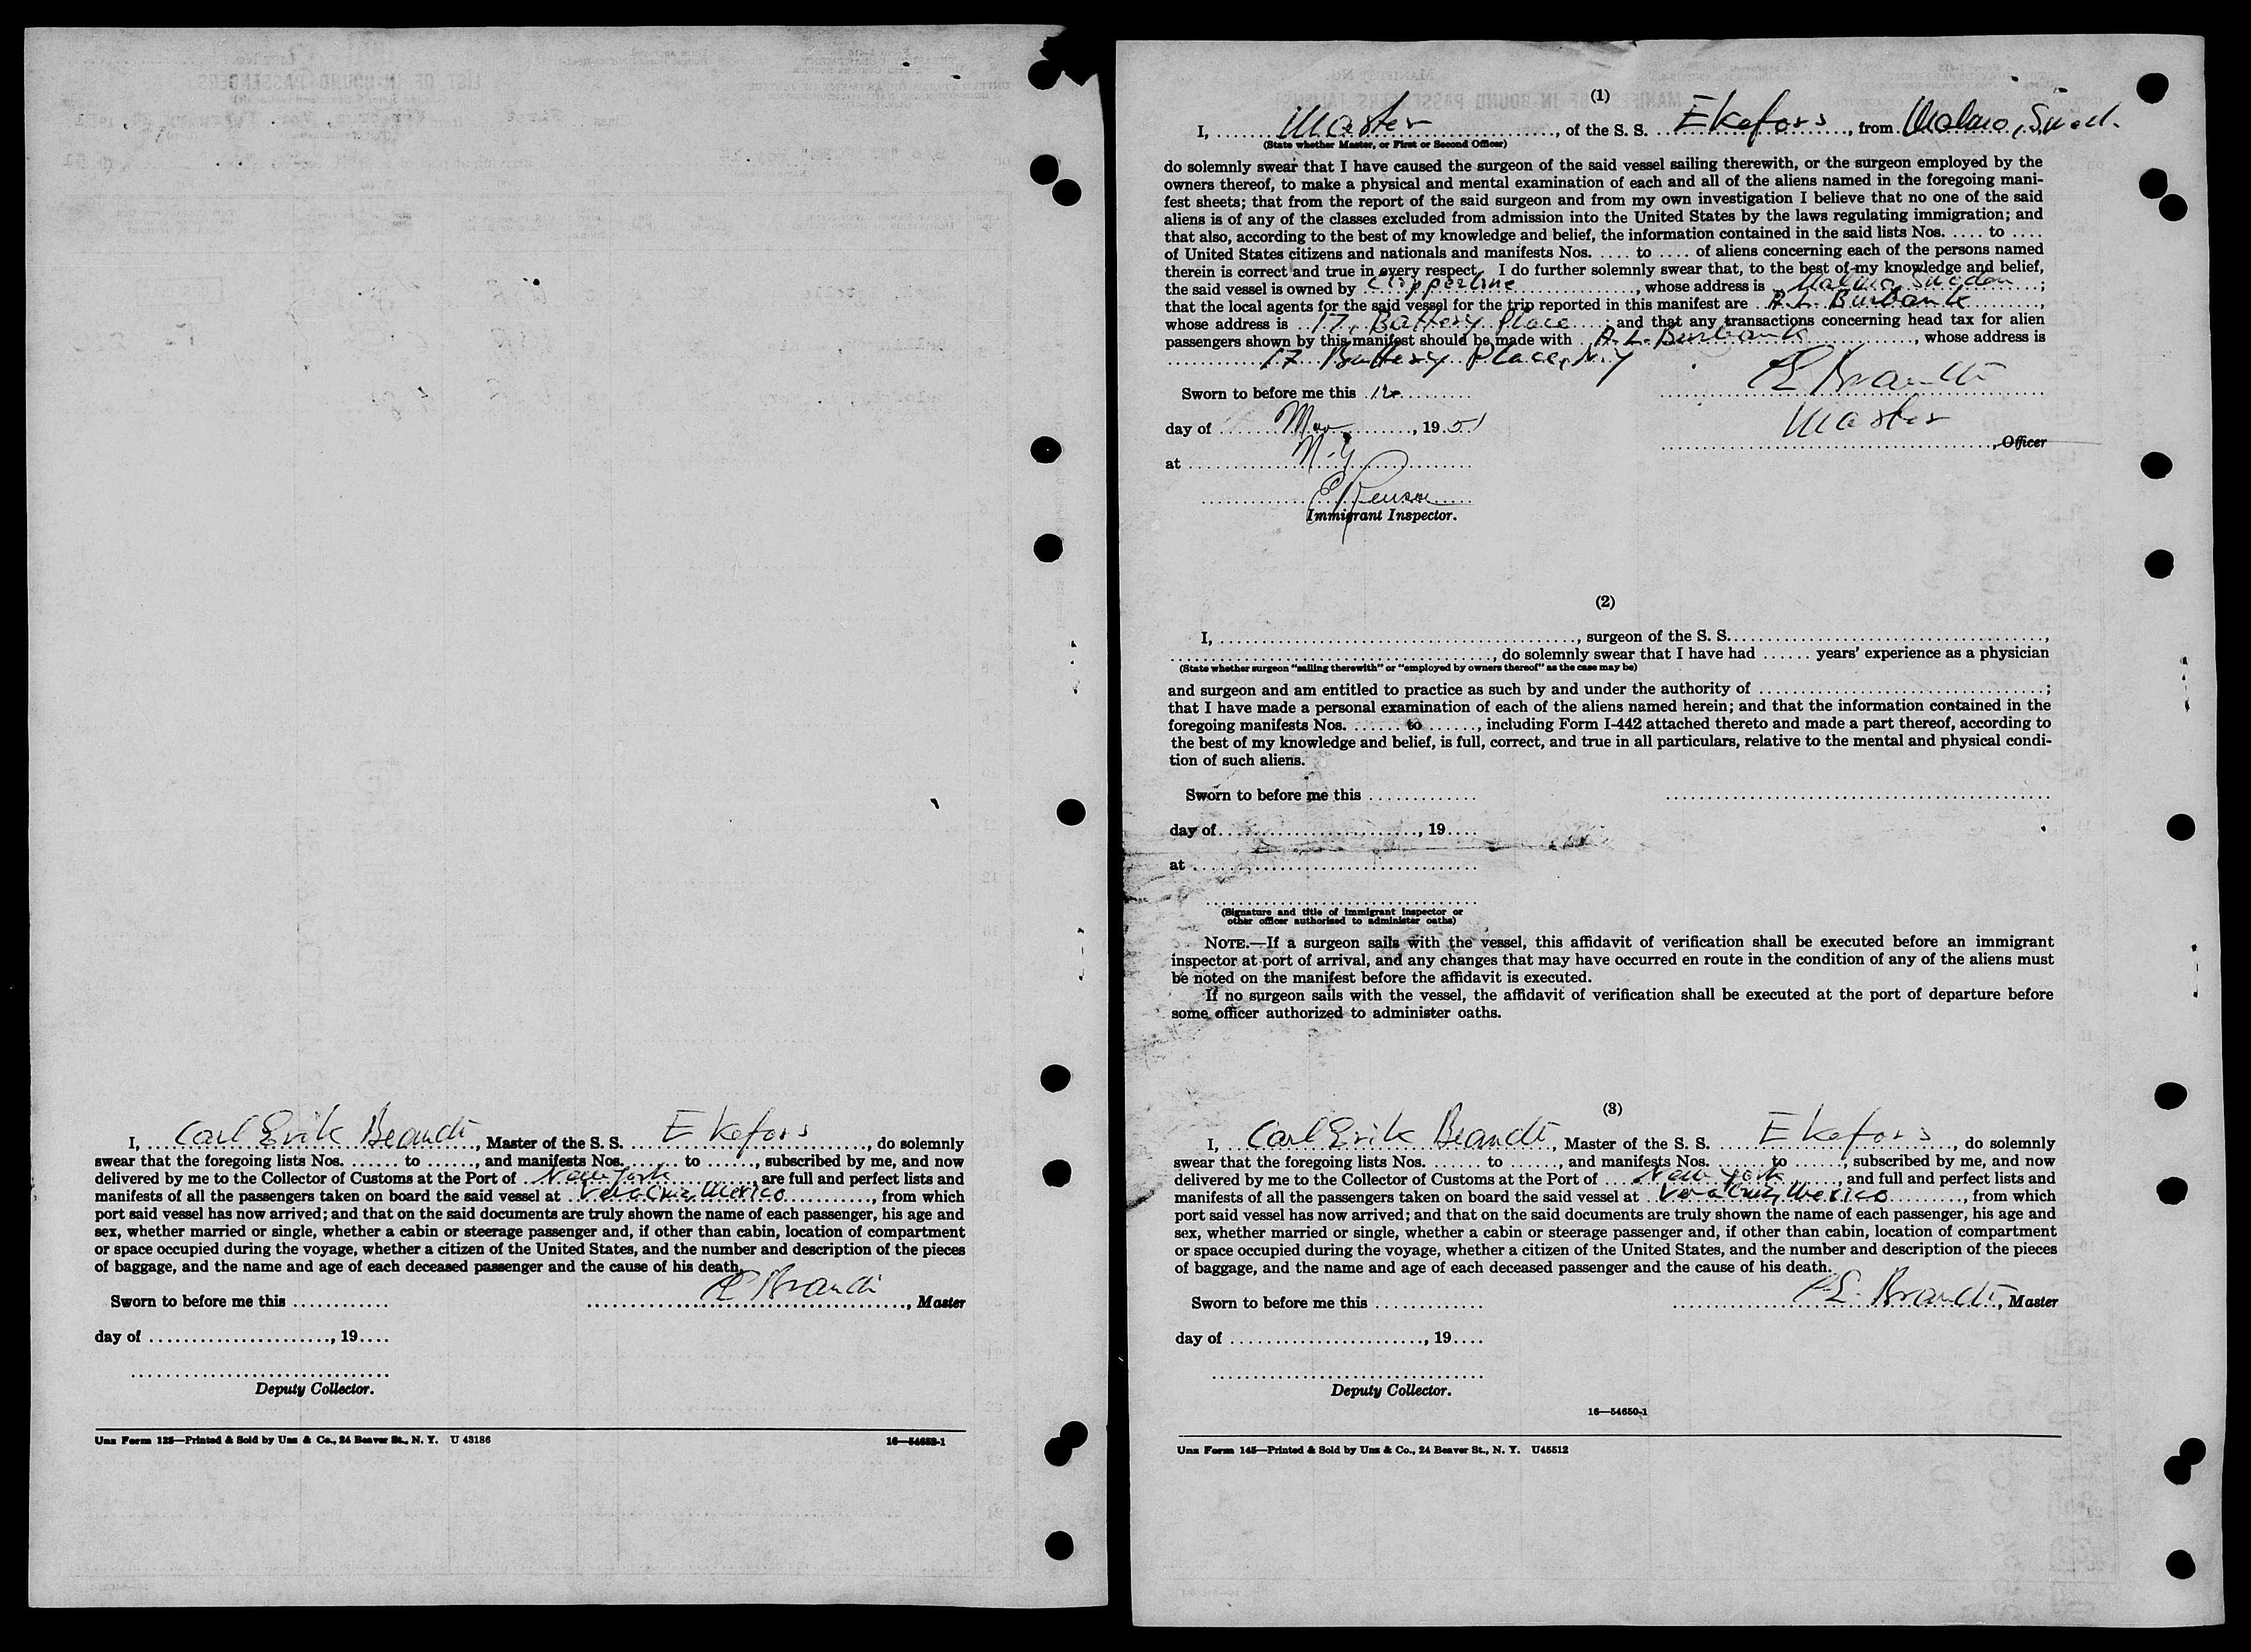 I, Carl Erik Brandt, Master of the S. S. Ekefors, do solemnly
swear that the foregoing lists Nos. ....... to ......., and manifests Nos. ....... to ......., subscribed by me, and now
delivered by me to the Collector of Customs at the Port of New York, are full and perfect lists and
manifests of all the passengers taken on board the said vessel at Vera Cruz, Mexico, from which
port said vessel has now arrived; and that on the said documents are truly shown the name of each passenger, his age and
sex, whether married or single, whether a cabin or steerage passenger and, if other than cabin, location of compartment
or space occupied during the voyage, whether a citizen of the United States, and the number and description of the pieces
of baggage, and the name and age of each deceased passenger and the cause of his death.
CE Brandt
Sworn to before me this ............ , Master
day of ....................., 19....
Deputy Collector.
Unz Form 125—Printed & Sold by Unz & Co., 24 Beaver St., N. Y. U 43186
(1)
I, Master, of the S. S. Ekefors, from Malmo, Swed.
(State whether Master, or First or Second Officer)
do solemnly swear that I have caused the surgeon of the said vessel sailing therewith, or the surgeon employed by the
owners thereof, to make a physical and mental examination of each and all of the aliens named in the foregoing mani-
fest sheets; that from the report of the said surgeon and from my own investigation I believe that no one of the said
aliens is of any of the classes excluded from admission into the United States by the laws regulating immigration; and
that also, according to the best of my knowledge and belief, the information contained in the said lists Nos. .... to ....
of United States citizens and nationals and manifests Nos. .... to .... of aliens concerning each of the persons named
therein is correct and true in every respect. I do further solemnly swear that, to the best of my knowledge and belief,
the said vessel is owned by Clipperline, whose address is Malmo, Sweden;
that the local agents for the said vessel for the trip reported in this manifest are A. L. Burbank,
whose address is 17, Battery Place; and that any transactions concerning head tax for alien
passengers shown by this manifest should be made with A. L. Burbank, whose address is
17 Battery Place, N.Y
Sworn to before me this 12 CE Brandt
day of Mar, 1951 Master
, Officer
at N.Y
Immigrant Inspector.
(2)
I, ........................................, surgeon of the S. S.....................................,
....................................., do solemnly swear that I have had ...... years' experience as a physician
(State whether surgeon "sailing therewith" or "employed by owners thereof" as the case may be)
and surgeon and am entitled to practice as such by and under the authority of .................................;
that I have made a personal examination of each of the aliens named herein; and that the information contained in the
foregoing manifests Nos. ....... to ......, including Form I-442 attached thereto and made a part thereof, according to
the best of my knowledge and belief, is full, correct, and true in all particulars, relative to the mental and physical condi-
tion of such aliens.
Sworn to before me this .............
day of......................., 19....
at ................................
(Signature and title of immigrant inspector or
other officer authorized to administer oaths)
NOTE.—If a surgeon sails with the vessel, this affidavit of verification shall be executed before an immigrant
inspector at port of arrival, and any changes that may have occurred en route in the condition of any of the aliens must
be noted on the manifest before the affidavit is executed.
If no surgeon sails with the vessel, the affidavit of verification shall be executed at the port of departure before
some officer authorized to administer oaths.
(3)
I, Carl Erik Brandt, Master of the S. S. Ekefors, do solemnly
swear that the foregoing lists Nos. ....... to ......, and manifests Nos. ....... to ......, subscribed by me, and now
delivered by me to the Collector of Customs at the Port of New York, and full and perfect lists and
manifests of all the passengers taken on board the said vessel at Vera Cruz, Mexico, from which
port said vessel has now arrived; and that on the said documents are truly shown the name of each passenger, his age and
sex, whether married or single, whether a cabin or steerage passenger and, if other than cabin, location of compartment
or space occupied during the voyage, whether a citizen of the United States, and the number and description of the pieces
of baggage, and the name and age of each deceased passenger and the cause of his death.
C.E. Brandt
Sworn to before me this ............. , Master
day of ......................, 19....
Deputy Collector.
16—54650-1
Unz Form 145—Printed & Sold by Unz & Co., 24 Beaver St., N. Y. U45512